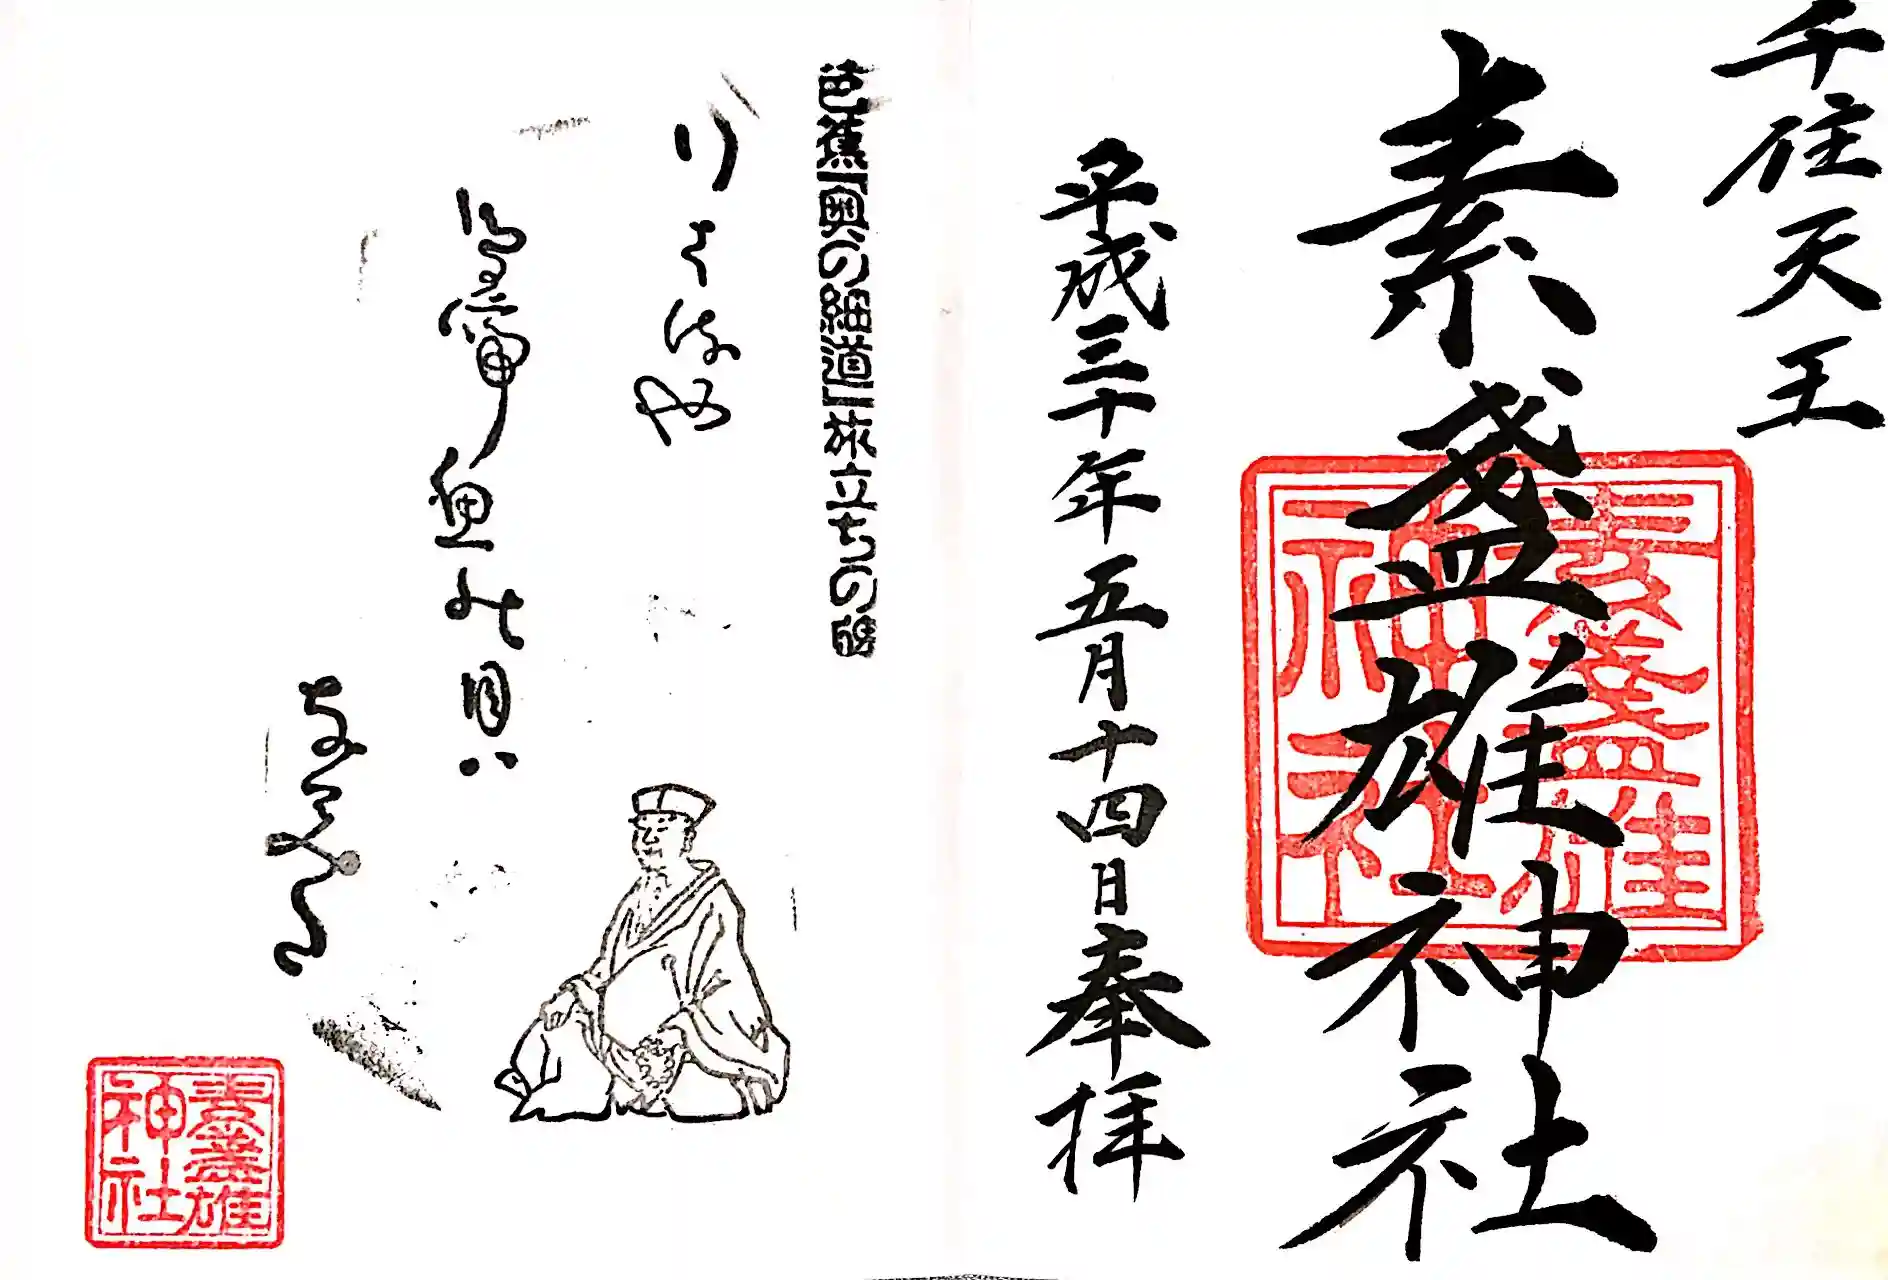 千住天王
素盞雄神社
素盞雄神社
平成三十年五月十四日奉拝
芭蕉「奥の細道」旅立ちの碑
行はるや
鳥啼魚の目ハ
なみた
素盞雄神社